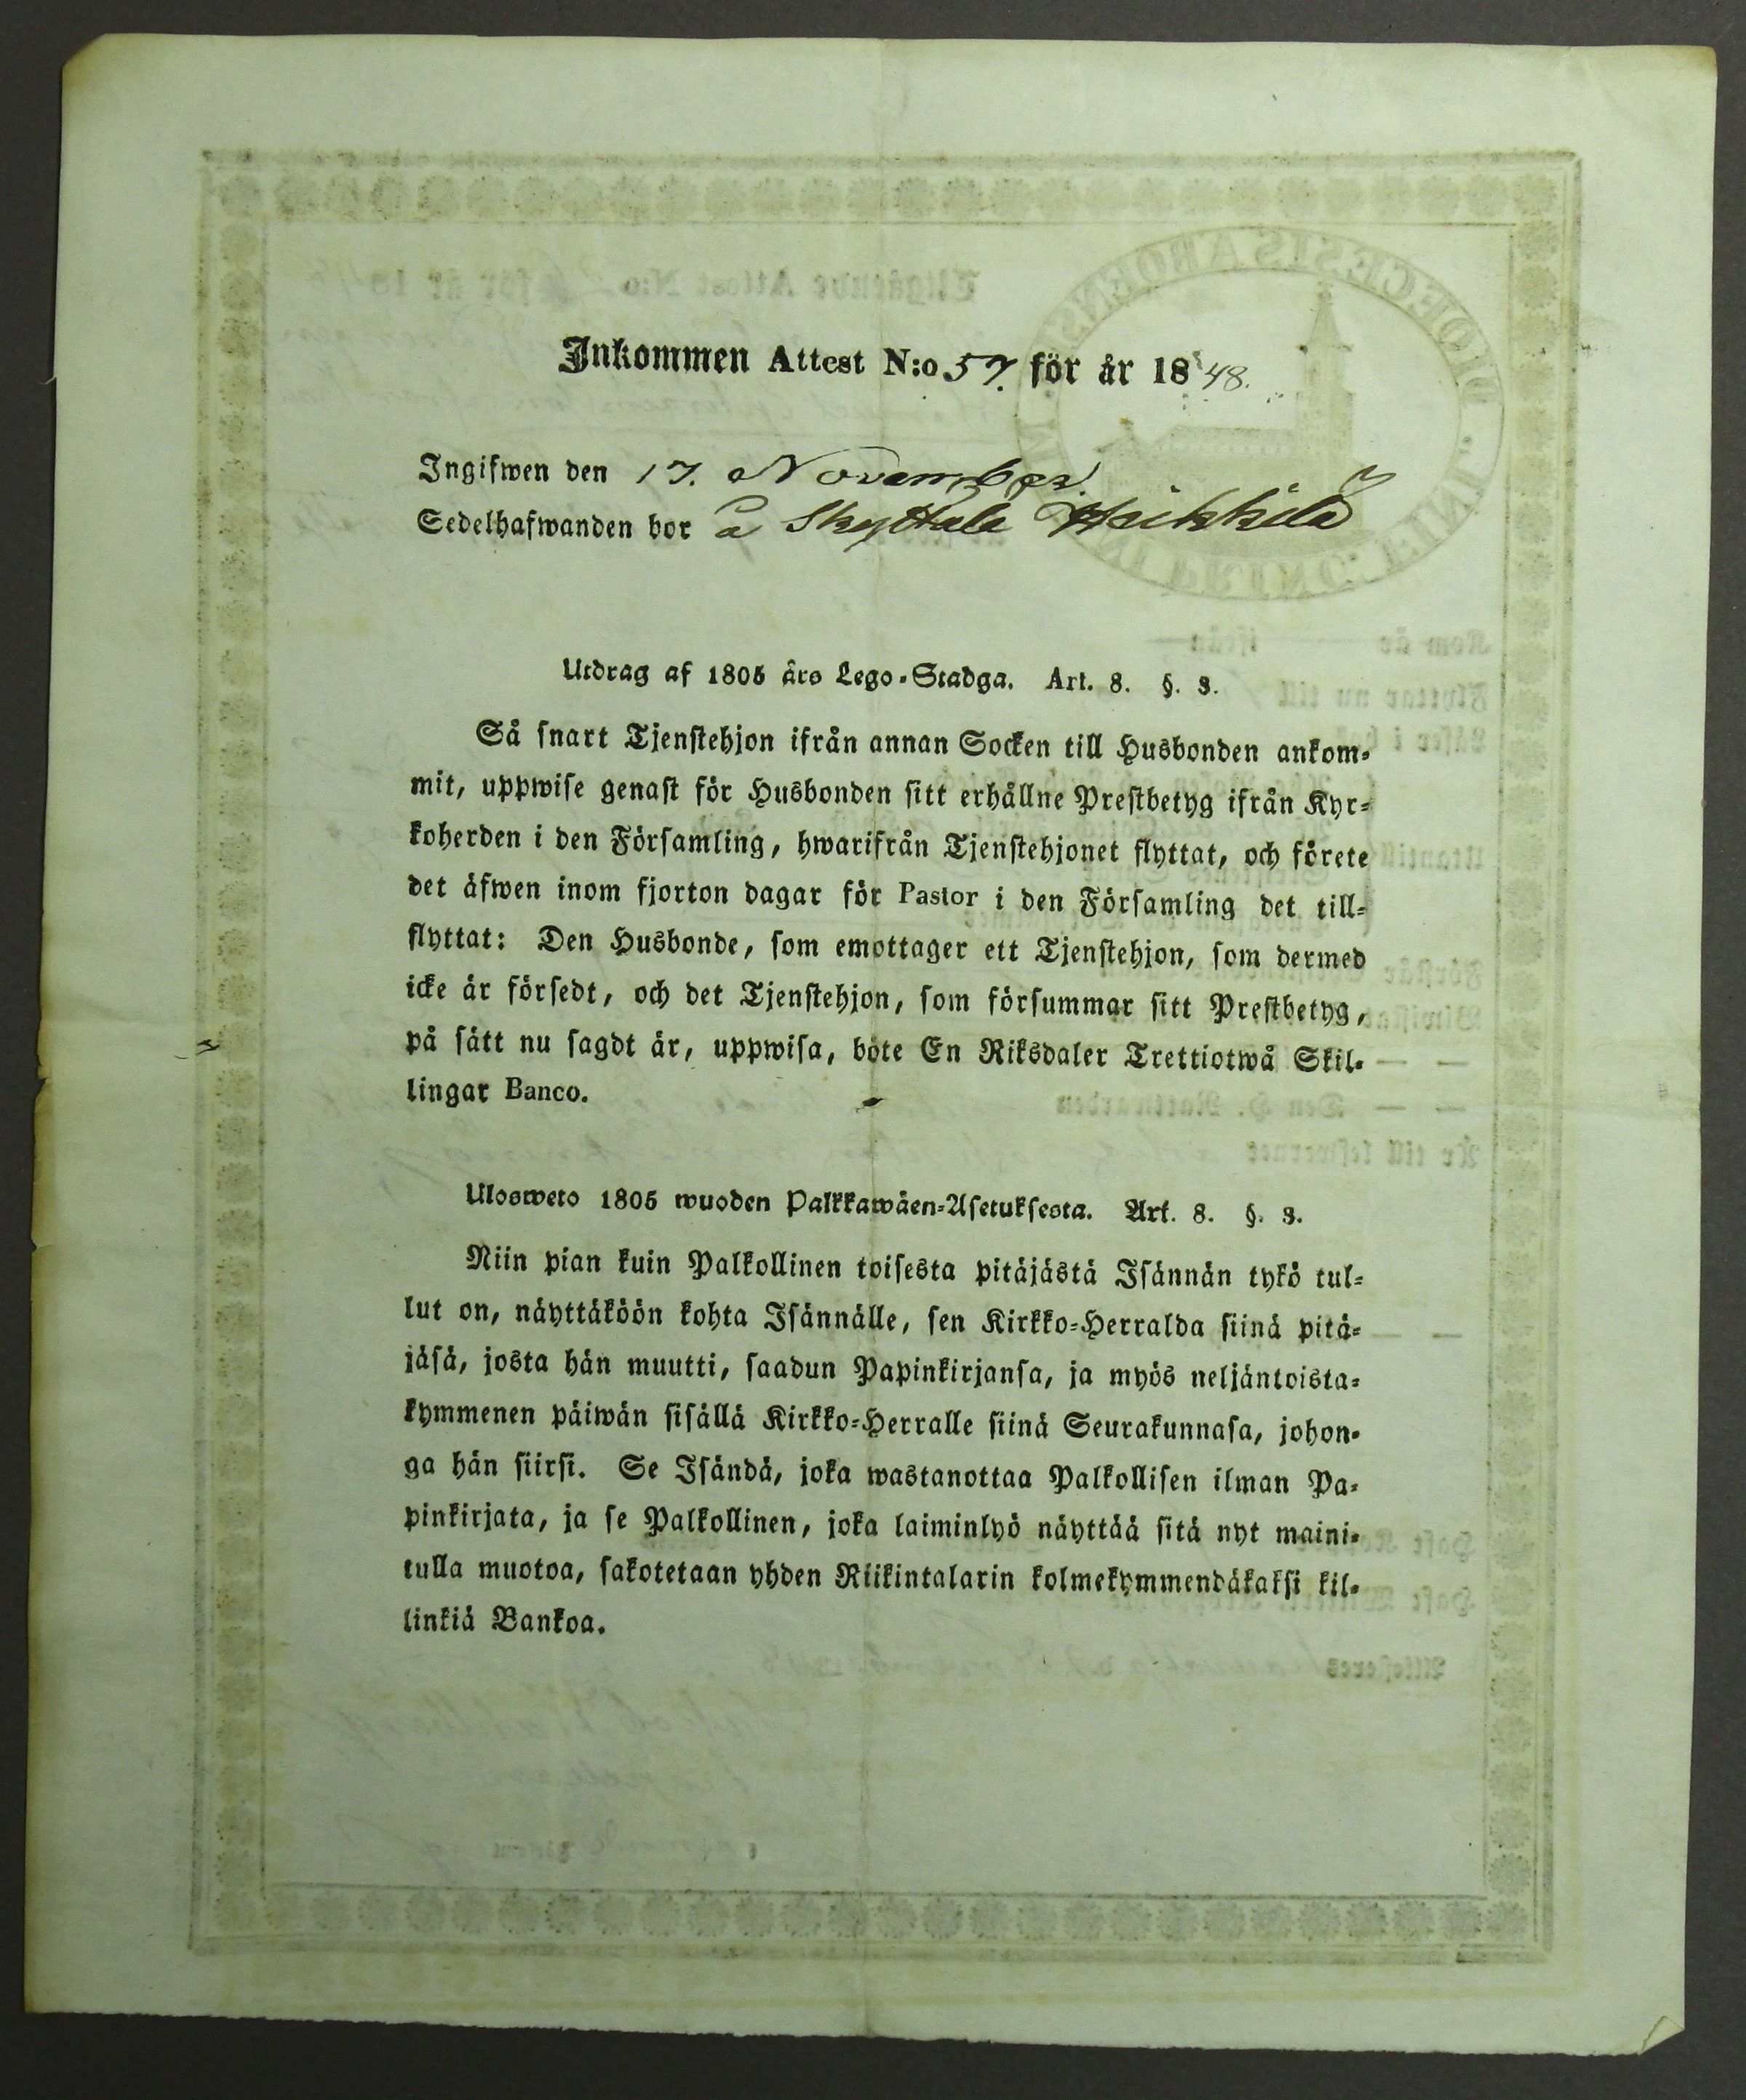 Inkommen Attest N:o 57. för år 1848.
Ingifwen den 17. November.
Sedelhafwanden bor å Skyttälä Heikkilä
Utdrag af 1805 års Lego-Stadga. Art. 8. §. 3.
Så snart Tjenstehjon ifrån annan Socken till Husbonden ankom-
mit, uppwise genast för Husbonden sitt erhållne Prestbetyg ifrån Kyr-
koherden i den Församling, hwarifrån Tjenstehjonet flyttat, och förete
det äfwen inom fjorton dagar för Pastor i den Församling det till-
flyttat: Den Husbonde, som emottager ett Tjenstehjon, som dermed
icke är försedt, och det Tjenstehjon, som försummar sitt Prestbetyg,
på sätt nu sagdt är, uppwisa, böte En Riksdaler Trettiotwå Skil-
lingar Banco.
Ulosweto 1805 wuoden Palkkawäen-Asetuksesta. Art. 8. §. 3.
Niin pian kuin Palkollinen toisesta pitäjästä Isännän tykö tul-
lut on, näyttäköön kohta Isännälle, sen Kirkko-Herralda siinä pitä-
jäsä, josta hän muutti, saadun Papinkirjansa, ja myös neljäntoista-
kymmenen päiwän sisällä Kirkko-Herralle siinä Seurakunnasa, johon-
ga hän siirsi. Se Isändä, joka wastanottaa Palkollisen ilman Pa-
pinkirjata, ja se Palkollinen, joka laiminlyö näyttää sitä nyt maini-
tulla muotoa, sakotetaan yhden Riikintalarin kolmekymmendäkaksi kil-
linkiä Bankoa.